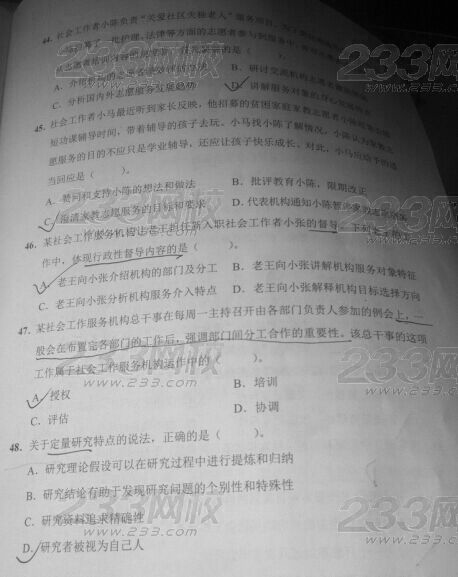 44. 社会工作者小陈负责“关爱社区失独老人”服务项目，为了
一批护理、法律等方面的志愿者参与到服务中
C. 分析国内外志愿服务发展趋势
D. 讲解服务对象的身心发展特点
45. 社会工作者小马最近听到家长反映，他招募的贫困家庭家教志愿者小陈经常
短功课辅导时间，带着辅导的孩子去玩。小马找小陈了解情况，小陈认为家教志
愿服务的目的不应只是学业辅导，还应让孩子快乐成长。对此，小马应给予的适
当回应是（ ）。
A. 赞同和支持小陈的想法和做法
B. 批评教育小陈，限期改正
C. 澄清家教志愿服务的目标和要求
D. 代表机构通知小陈
46. 某社会工作服务机构让老王担任新入职社会工作者小张的督导，下列老王的工
作中，体现行政性督导内容的是（ ）。
A. 老王向小张介绍机构的部门及分工
B. 老王向小张讲解机构服务对象特征
C. 老王向小张分析机构服务介入特点
D. 老王向小张解释机构目标选择方向
47. 某社会工作服务机构总干事在每周一主持召开由各部门负责人参加的例会上，一
般会在布置完各部门的工作后，强调部门间分工合作的重要性。该总干事的这项
工作属于社会工作服务机构运作中的（ ）。
A. 授权
B. 培训
C. 评估
D. 协调
48. 关于定量研究特点的说法，正确的是（ ）。
A. 研究理论假设可以在研究过程中进行提炼和归纳
B. 研究结论有助于发现研究问题的个别性和特殊性
C. 研究资料追求精确性
D. 研究者被视为自己人
233网校
www.233.com